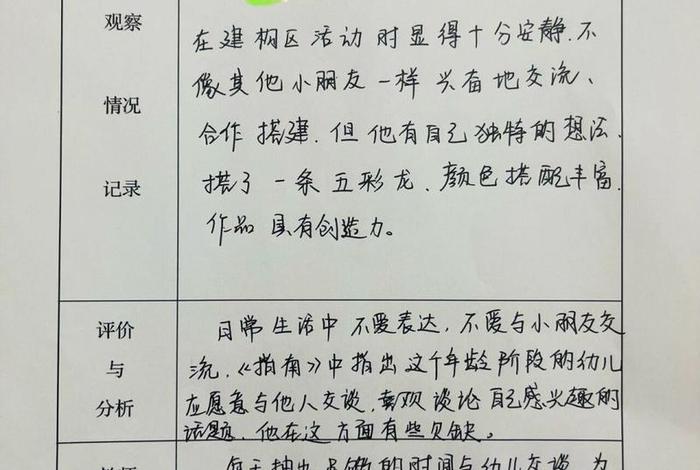 观察
情况
记录
在建构区活动时显得十分安静.不
像其他小朋友一样兴奋地交流、
合作搭建.但他有自己独特的想法.
搭了一条五彩龙.颜色搭配丰富.
作品具有创造力。
评价
与
分析
日常生活中不爱表达.不爱与小朋友交
流.《指南》中指出这个年龄阶段的幼儿
应愿意与他人交谈.喜欢谈论自己感兴趣的
话题.他在这方面有些欠缺。
每天抽出 的时间与幼儿交谈.为